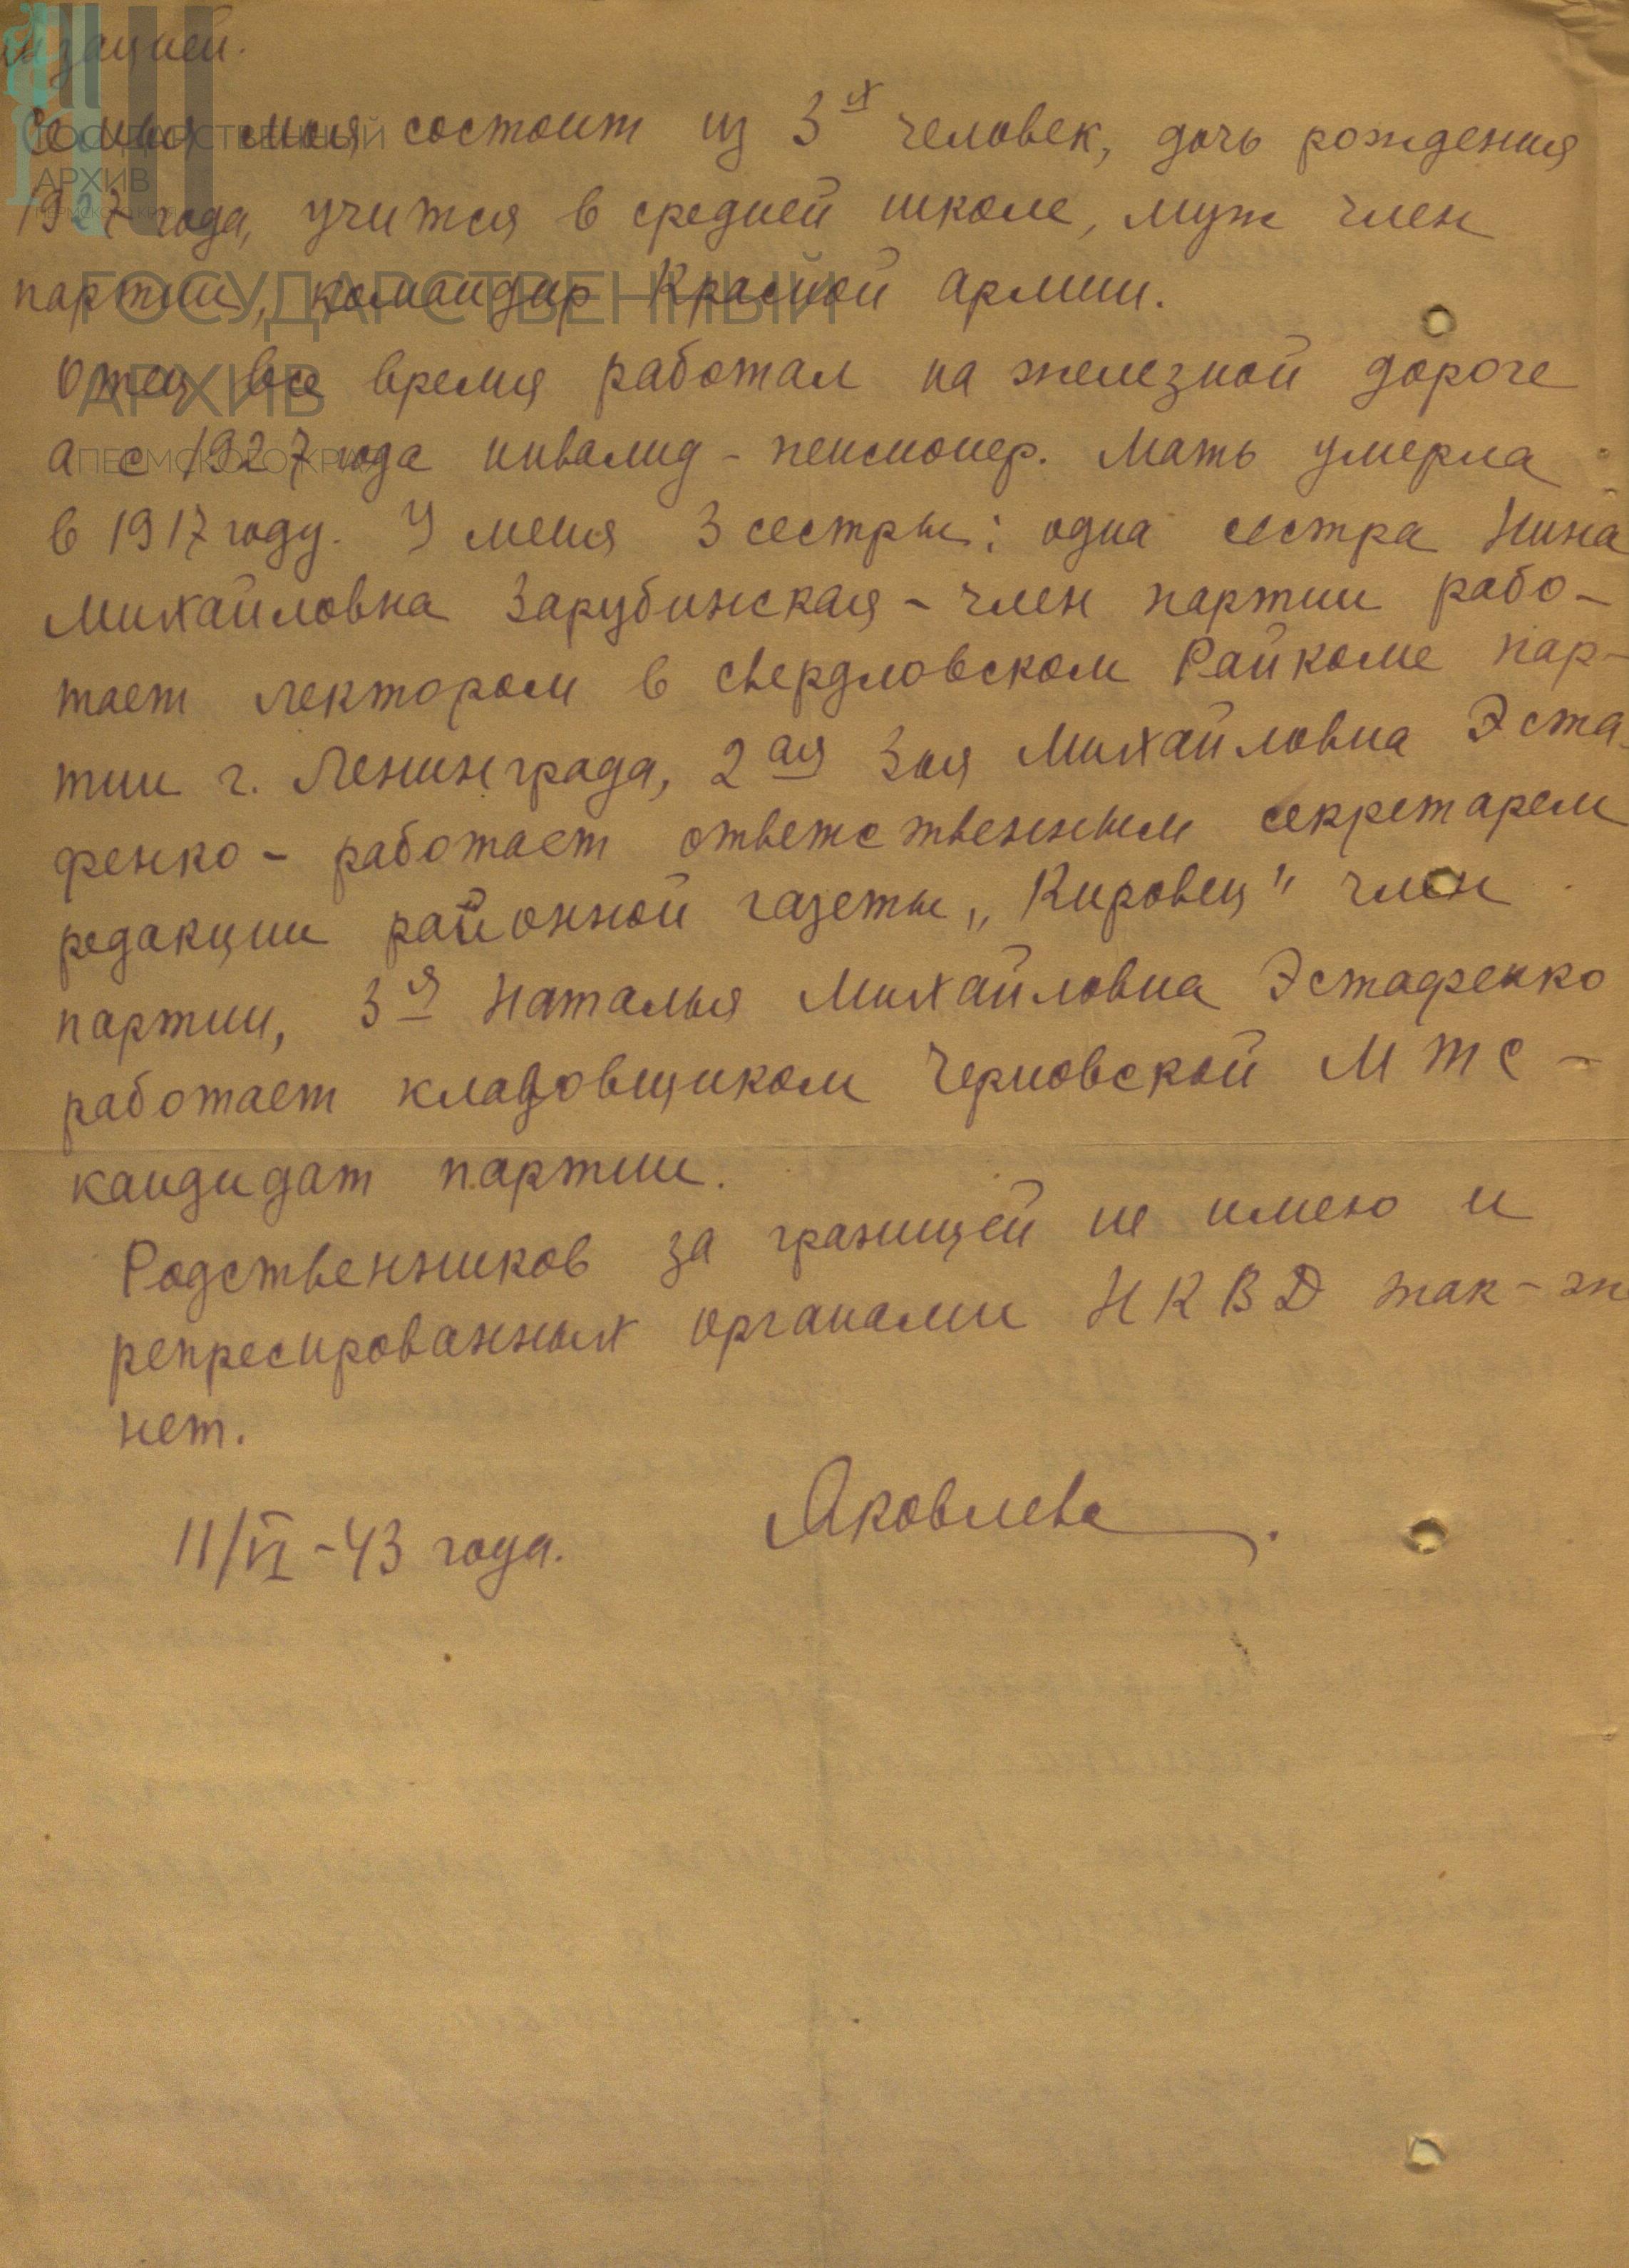 изацией.
Семья моя состоит из 3х человек, дочь рождения
1927 года, учится в средней школе, муж член
партии, командир Красной армии.
Отец все время работал на железной дороге
а с 1927 года инвалид - пенсионер. Мать умерла
в 1917 году. У меня 3 сестры: одна сестра Нина
Михайловна Зарубинская - член партии рабо-
тает лектором в Свердловском Райкоме пар-
тии г. Ленинграда, 2ая Зоя Михайловна Эста-
фенко - работает ответственным секретарем
редакции районной газеты „Кировец" член
партии, 3я Наталья Михайловна Эстафенко
работает кладовщиком Черновской МТС -
кандидат партии.
Родственников за границей не имею и
репресированных органами НКВД так-же
нет.
11/VI - 43 года. Яковлева.
ГОСУДАРСТВЕННЫЙ
АРХИВ
ПЕРМСКОГО КРАЯ
ГОСУДАРСТВЕННЫЙ
АРХИВ
ПЕРМСКОГО КРАЯ